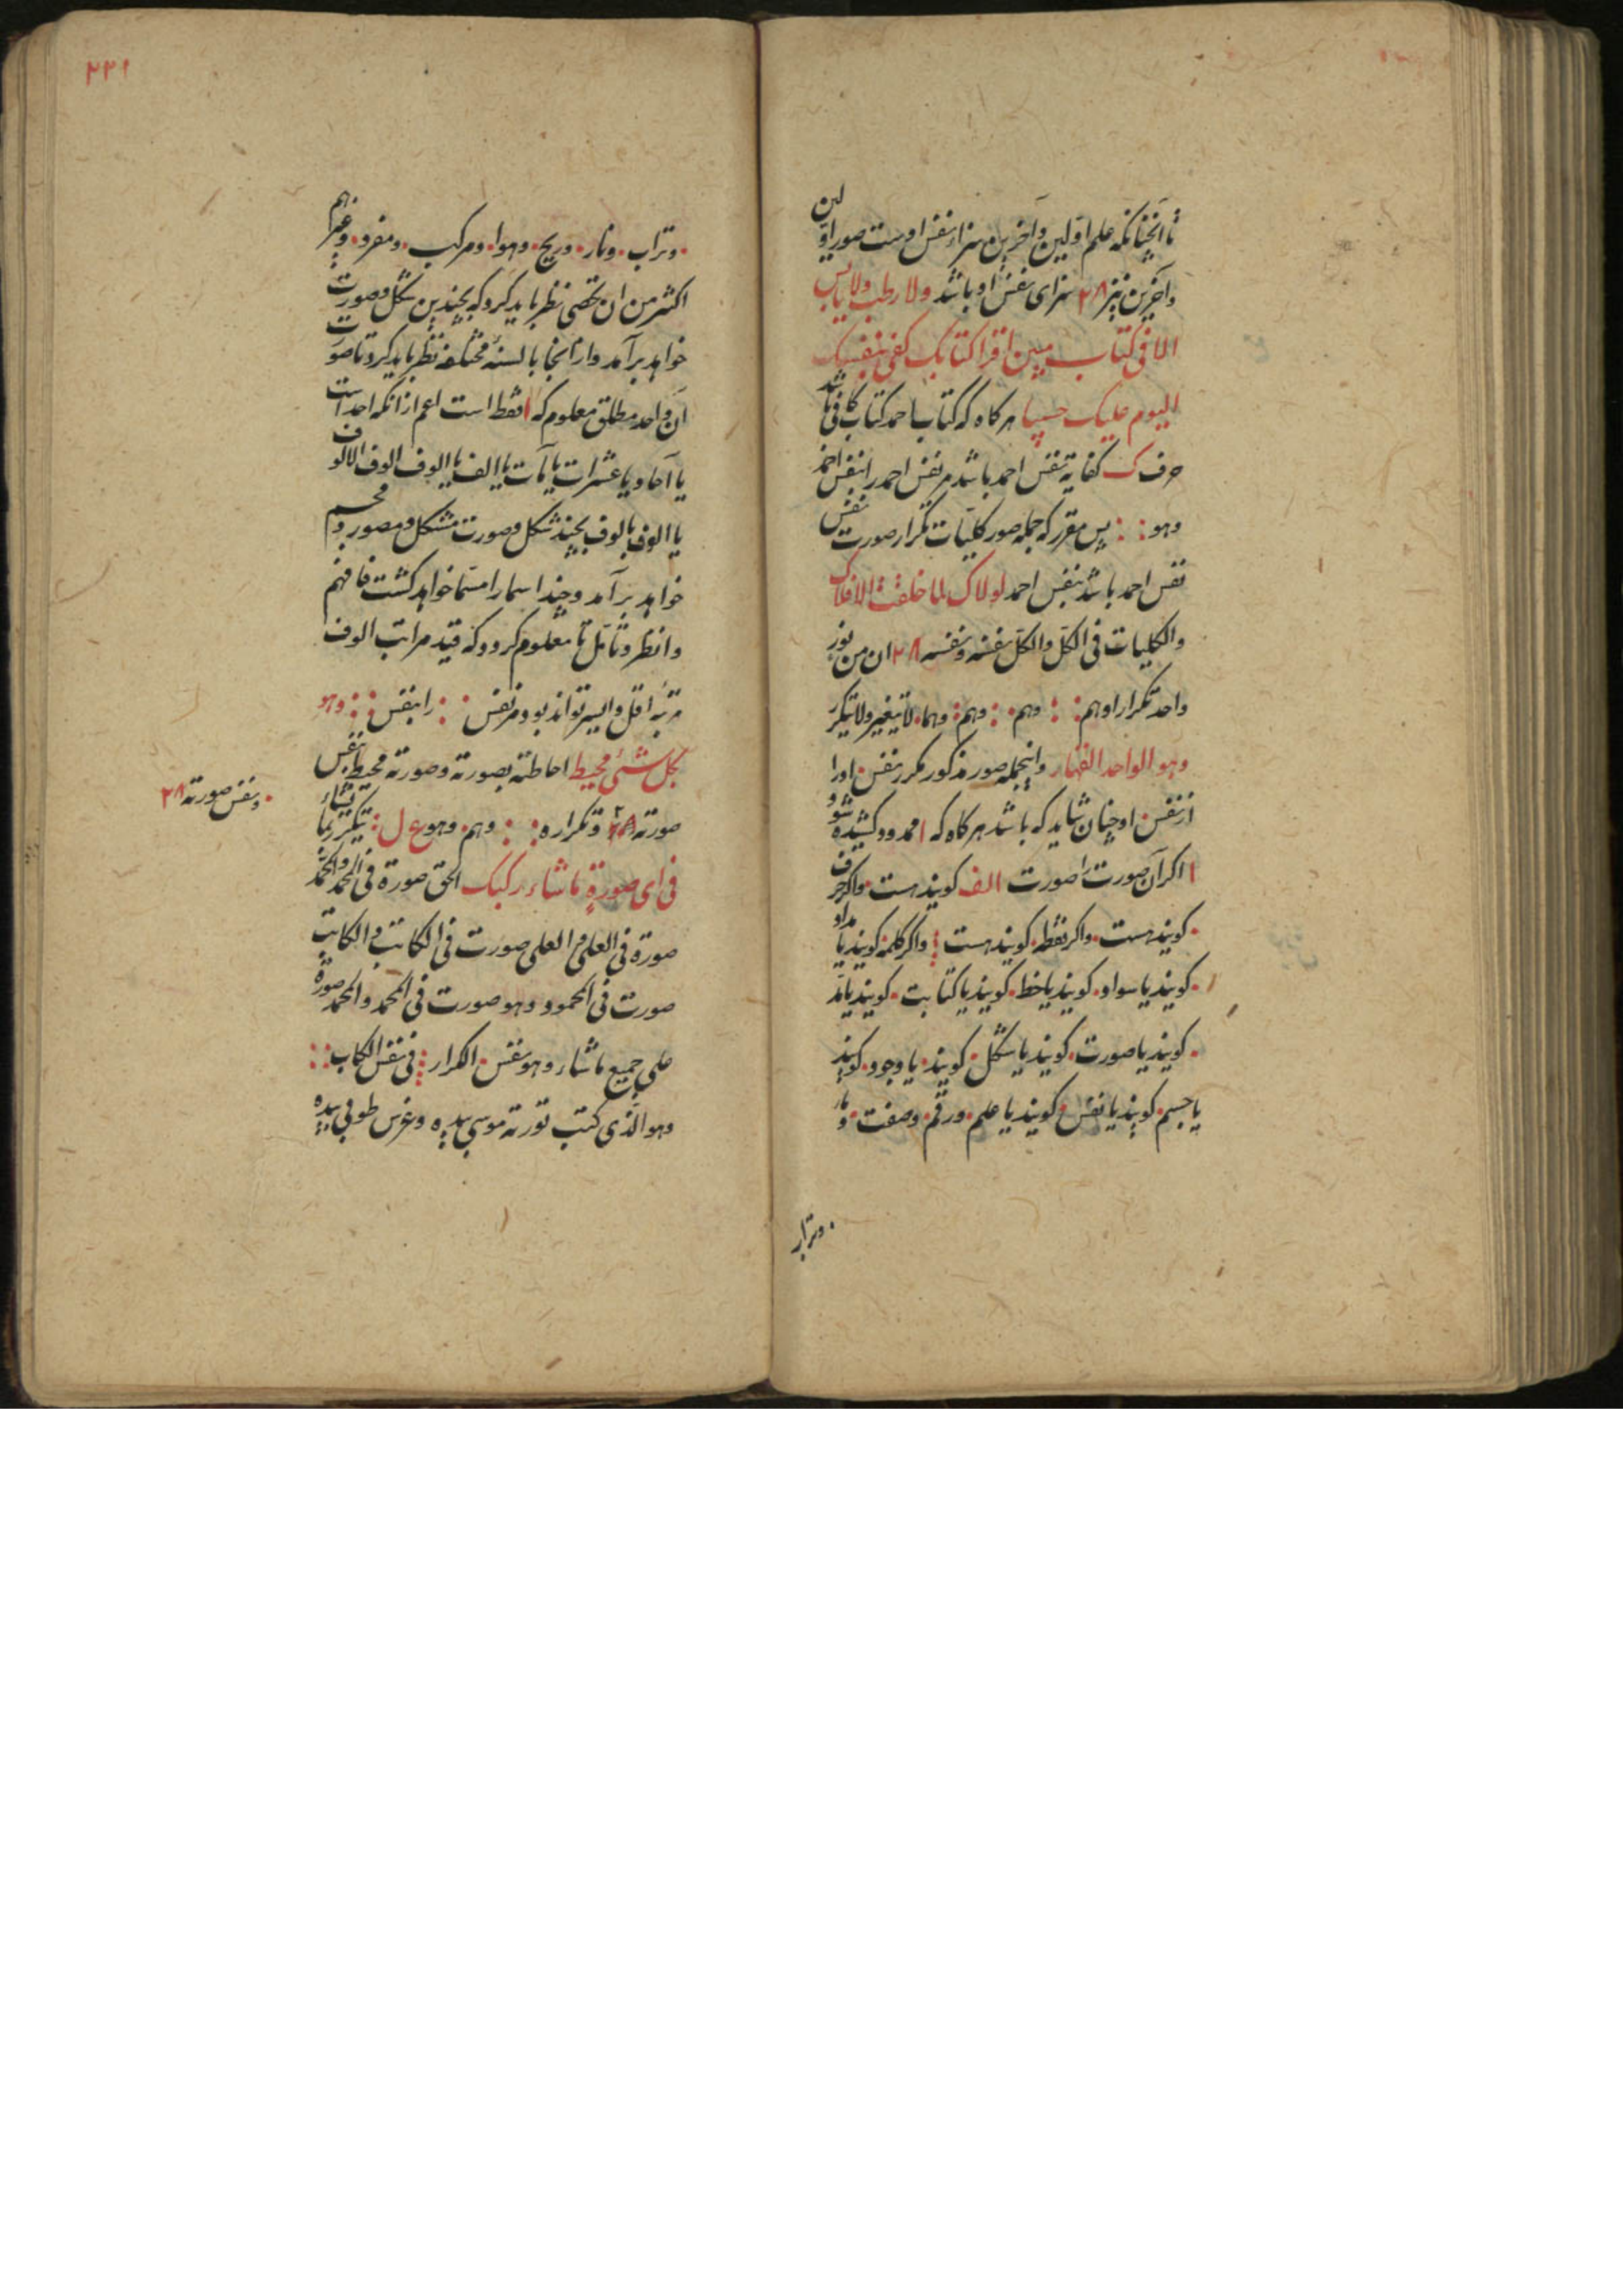 تا آنچنانکه علم اولین و آخرین سزاء نفس اوست صور اولین
و آخرین نیز ۲۸ سزای نفس او باشد ولا رطب ولا یابس
الا فی کتاب مبین اقرا کتابک کفی بنفسک
الیوم علیک حسیبا هرکاه که کتاب احمد کتاب کافی باشد
حرف ک کفایة نفس احمد باشد مر نفس احمد را بنفس احمد
وهو : : پس مقرر که جمله صور کلیات تکرار صورت نفس
نفس احمد باشد بنفس احمد لولاک لما خلقت الافلاک
والکلیات فی الکل والکل نفسه ونفسه ۲۸ ان من نور
واحد تکرار اوهم : : وهم . : وهم : وهما . لا یتغیر ولا یتکرر
وهو الواحد القهار و اینجمله صور مذکور مکرر نفس . اورا
از نفس . او چنان شاید که باشد هرکاه که ا ممدود کشیده شود
ا اکر آن صورت را صورت الف کویند هست . واکر حرف
. کویند هست . واکر نقطه . کویند هست : واکر کلمه . کویند یا مداد
. کویند یا سواد . کویند یا خط . کویند یا کتابت . کویند یا
. کویند یا صورت . کویند یا شکل . کویند . یا وجود . کویند
یا جسم . کویند یا نفس . کویند یا علم . ورقم . وصفت . و
. وتراب
۲۲۱
. وتراب . ونار . وریح . وهوا . ومرکب . ومفرد . وغیرهم
اکثر من ان تحصی نظر باید کرد که بچندین شکل وصورت
خواهد برآمد واز انجا بالسنهٔ مختلفه نظر باید کرد تا صورت
آن واحد مطلق معلوم که ا فقط است اعم از آنکه احد است
یا آحاد یا عشرات یا مآت یا الف یا الوف الوف الالوف
یا الوف بالوف بچند شکل وصورت مشکل ومصور ومجسم
خواهد برآمد وچند اسما را مسما خواهد کشت فافهم
وانظر وتامل تا معلوم کردد که قید مراتب الوف
مرتبهٔ اقل وایسر تواند بود مر نفس : : را بنفس : : وهو
بکل شئ محیط احاطته بصورته وصورته محیط بنفس
صورته ۲۸ وتکراره : : وهم . وهو ع ل : یتکرر بما یشاء
فی ای صورة ما شاء رکبک الحق صورة فی المحمد والمحمد
صورة فی العلی والعلی صورت فی الکاتب والکاتب
صورت فی المحمود وهو صورت فی المحمد والمحمد صورة
علی جمیع ما شاء وهو نفس . الکرار : فی نفس الکاب : :
وهو الذی کتب تورته موسی بیده وغرس طوبی بیده
. ونفس صورته ۲۸